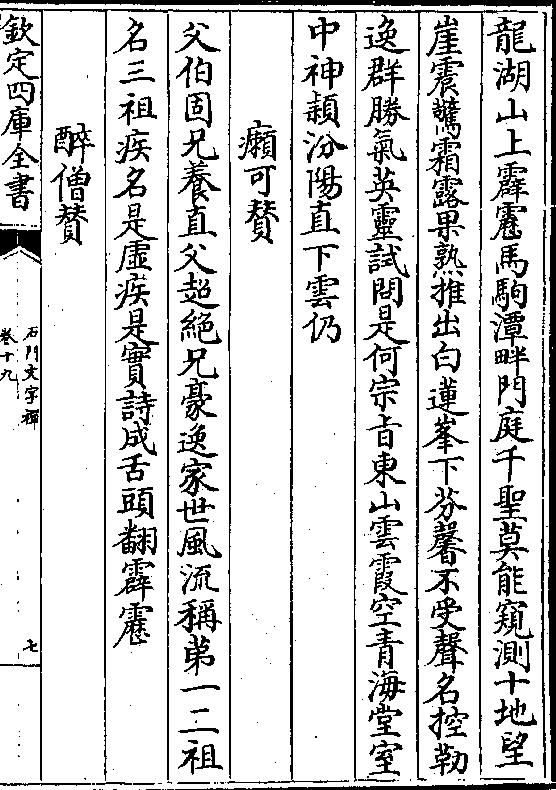 龍湖山上霹靂馬駒潭畔門庭千聖莫能窺測十地望
崖震驚霜露果熟推出白蓮峯下芬馨不受聲名控勒
逸群勝氣英靈試問是何宗旨東山雲霞空青海堂室
中神穎汾陽直下雲仍
癩可贊
父伯固兄養直父超絶兄豪逸家世風流稱第一二祖
名三祖疾名是虛疾是實詩成舌頭翻霹靂
醉僧贊
欽定四庫全書
石門文字禪
卷十九
七